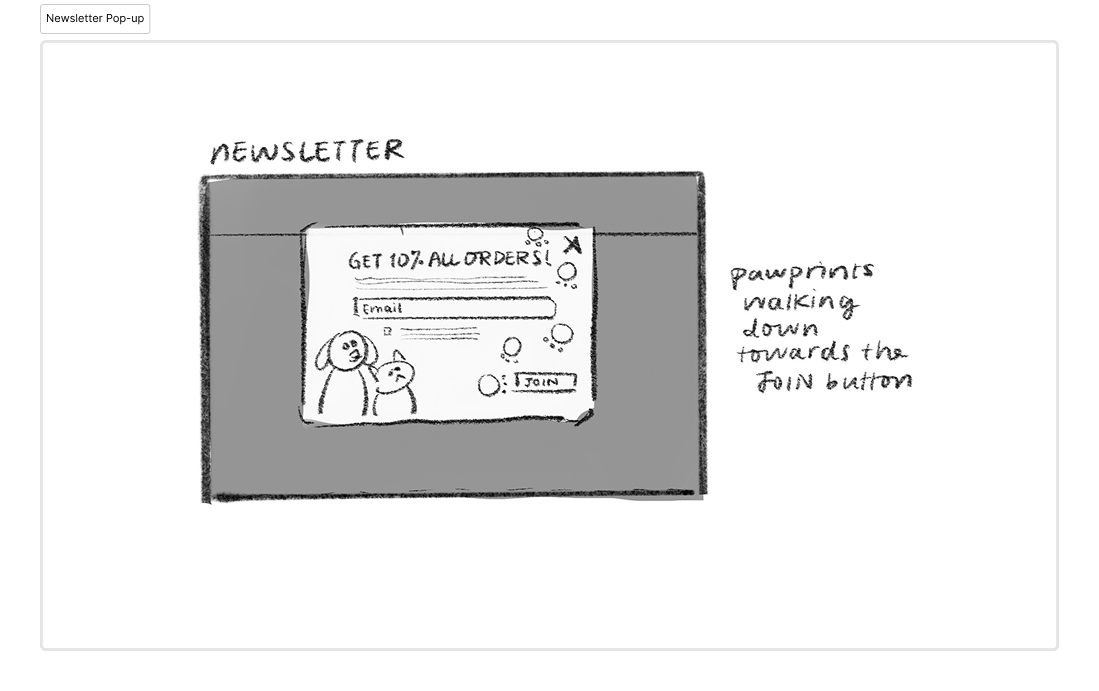 Newsletter Pop-up
NEWSLETTER
GET 10% ALL ORDERS!
X
Email
JOIN
pawprints
walking
down
towards the
JOIN button